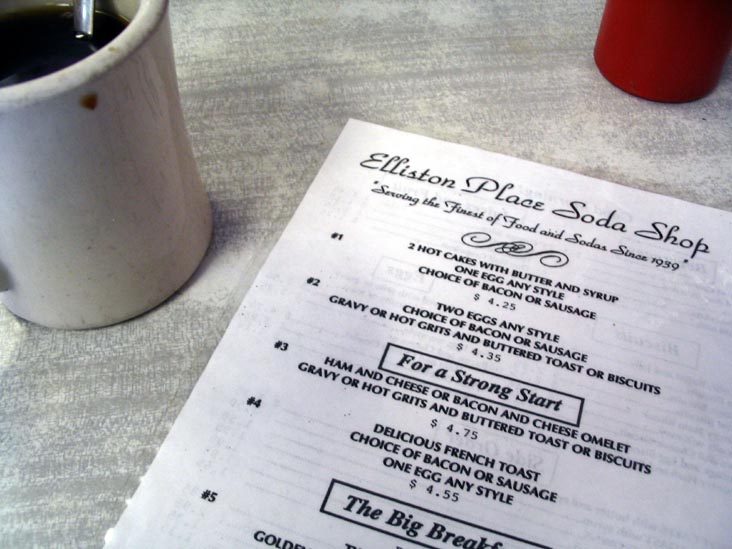 Elliston Place Soda Shop
"Serving the Finest of Food and Sodas Since 1939"
#1
2 HOT CAKES WITH BUTTER AND SYRUP
ONE EGG ANY STYLE
CHOICE OF BACON OR SAUSAGE
$ 4.25
#2
TWO EGGS ANY STYLE
CHOICE OF BACON OR SAUSAGE
GRAVY OR HOT GRITS AND BUTTERED TOAST OR BISCUITS
$ 4.35
For a Strong Start
#3
HAM AND CHEESE OR BACON AND CHEESE OMELET
GRAVY OR HOT GRITS AND BUTTERED TOAST OR BISCUITS
$ 4.75
#4
DELICIOUS FRENCH TOAST
CHOICE OF BACON OR SAUSAGE
ONE EGG ANY STYLE
$ 4.55
The Big
#5